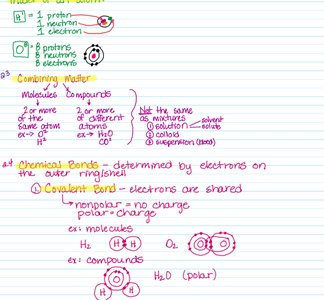 model of an atom
H¹ = 1 proton
1 neutron
1 electron
O⁸ = 8 protons
8 neutrons
8 electrons
2.3 Combining Matter
Molecules Compounds
2 or more of the same atom
ex → O²
H²
2 or more of different atoms
ex → H₂O
CO²
Not the same as mixtures
① solution solvent
solute
② colloid
③ suspension (blood)
2.4 Chemical Bonds - determined by electrons on
the outer ring/shell
① Covalent Bond - electrons are shared
nonpolar = no charge
polar = charge
ex: molecules
H₂ H H O₂ O O
ex: compounds
H₂O (polar)
O
H H